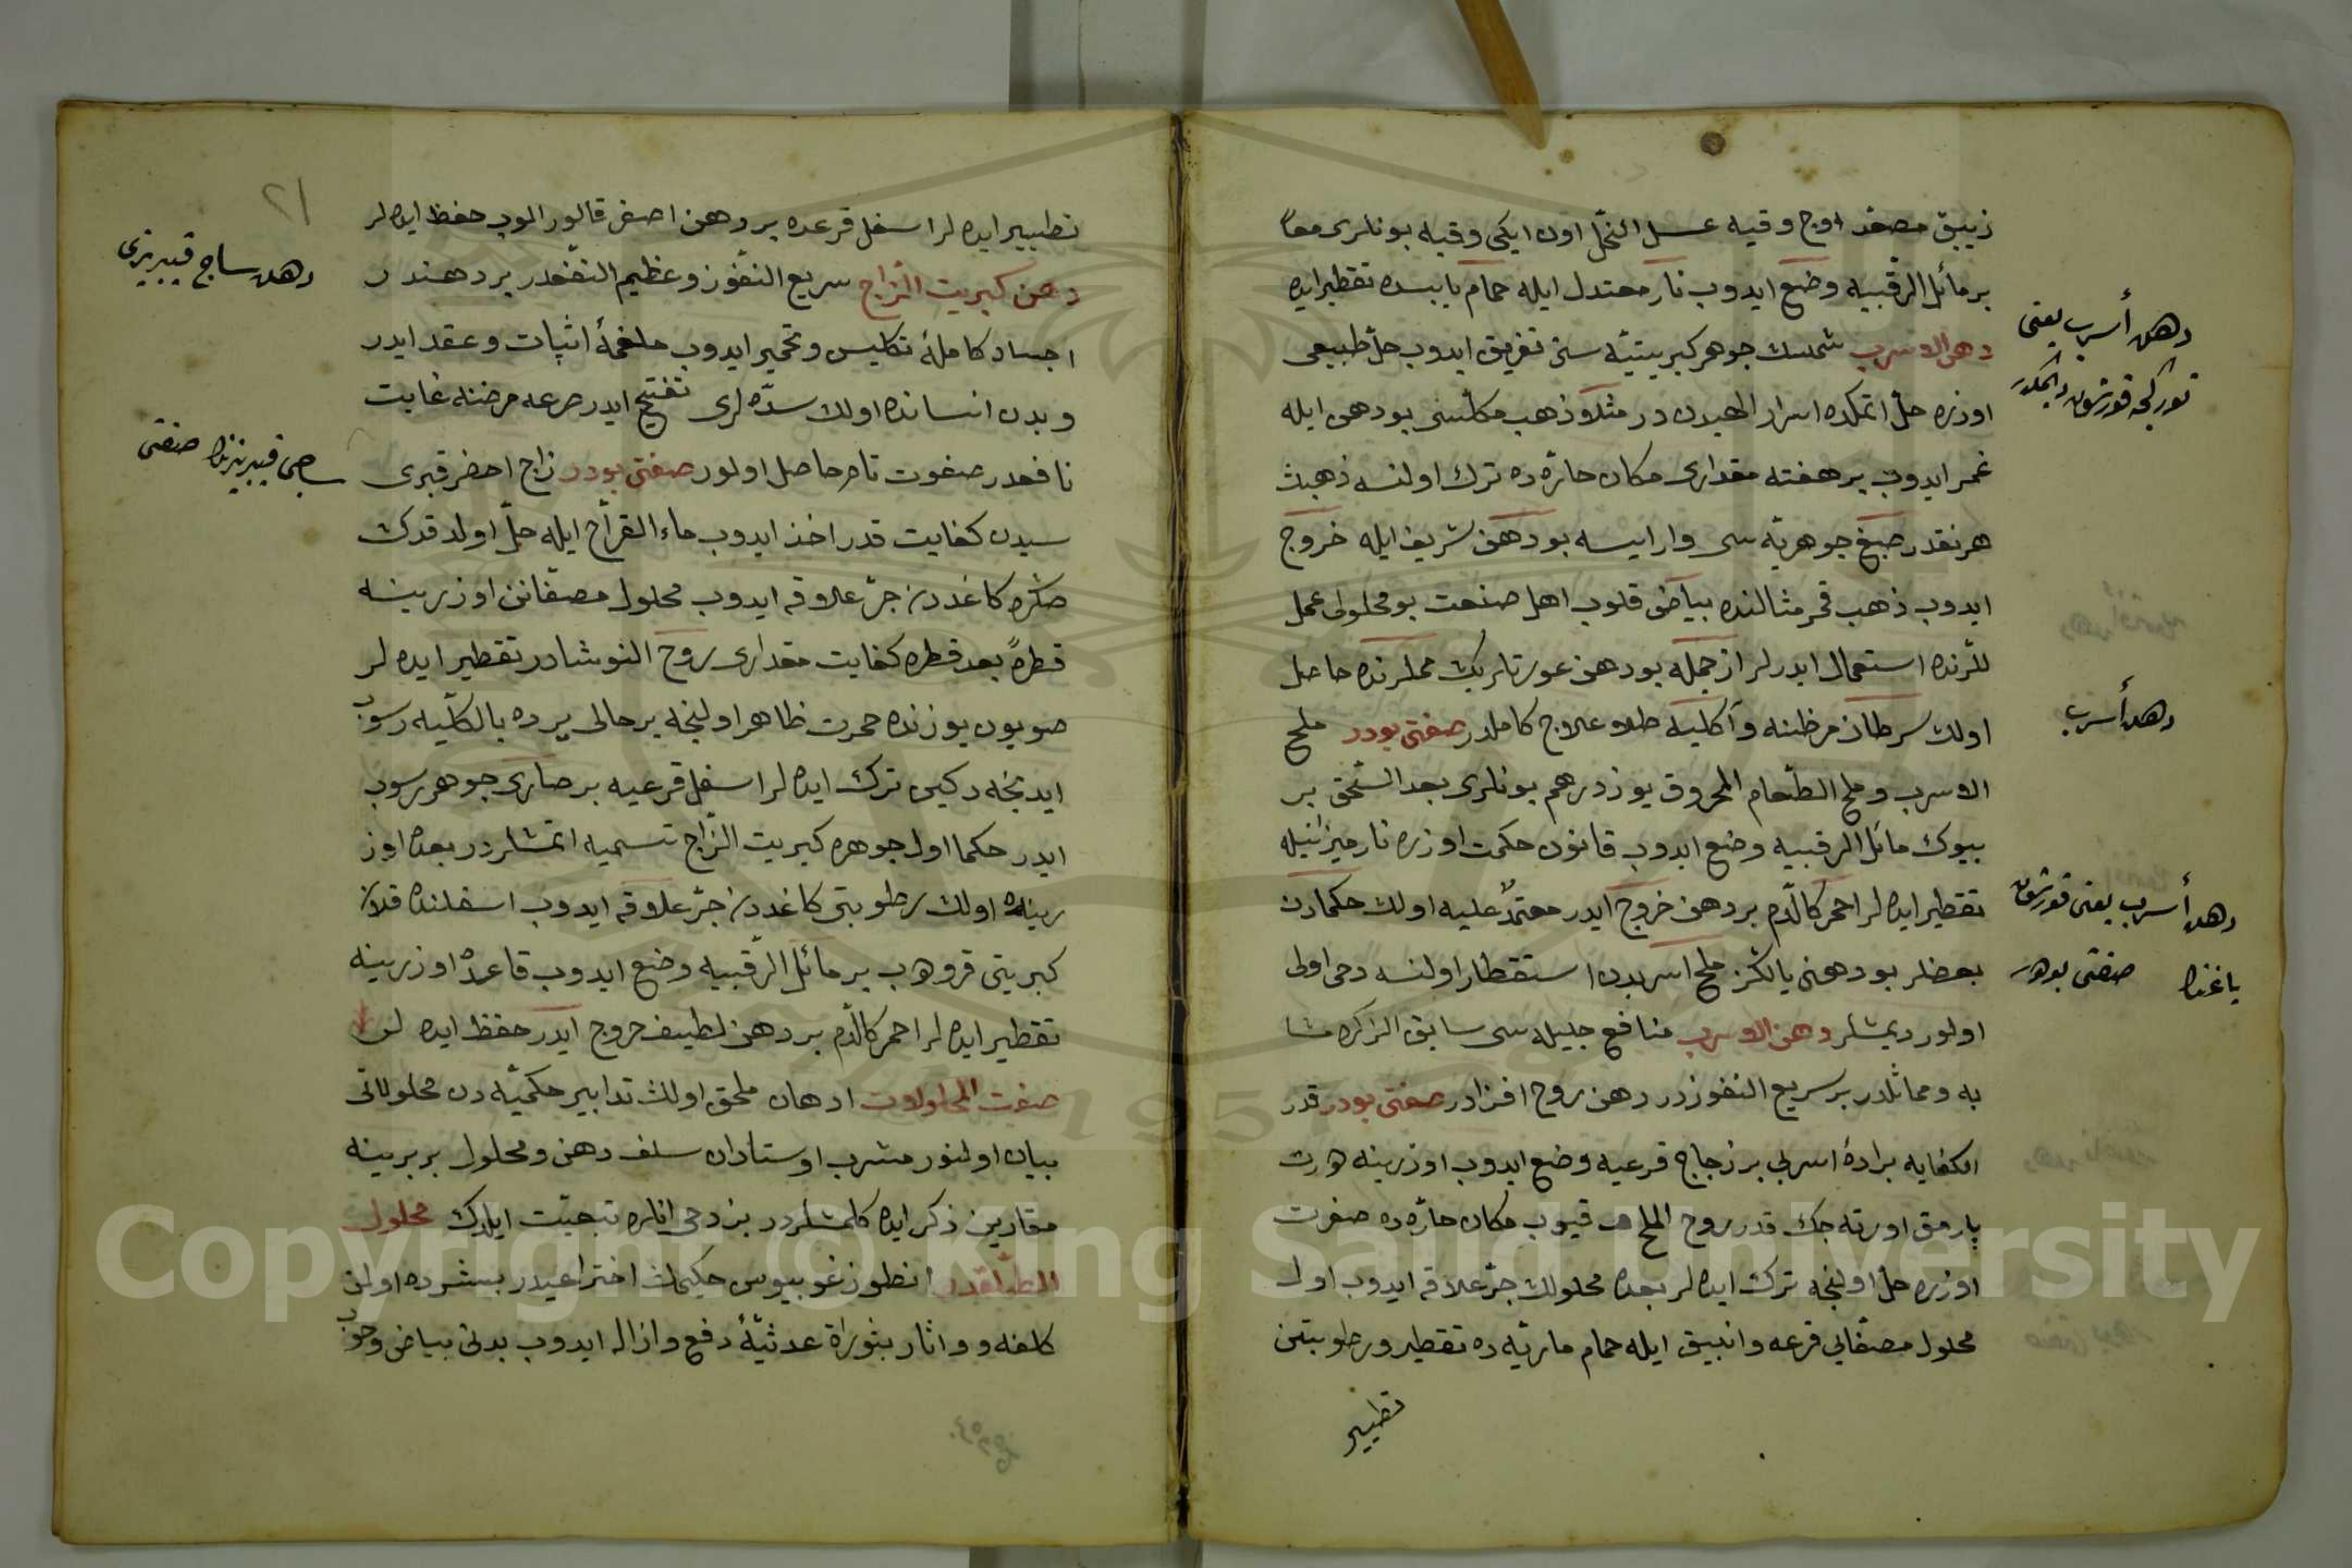 زيبق مصعد اوج وقيه عسل النحل اون ايكى وقيه بونلرى معا
بر مائل الرقبيه وضع ايدوب نار معتدل ايله حمام يابسده تقطير ايده
دهن الاسرب شمسك جوهر كبريتيه سنى تفريق ايدوب حل طبيعى
اوزره حل اتمكده اسرار الهيدن در مثلا ذهب مكلسى بو دهن ايله
غمر ايدوب بر هفته مقدارى مكان حاره ده ترك اولنسه ذهبك
هر نقدر صبغ جوهريه سى وار ايسه بو دهن شريف ايله خروج
ايدوب ذهب قمر مثالنده بياض قلوب اهل صنعت بو محلولى عمل
للرنده استعمال ايدرلر از جمله بو دهن عورتلريك محللرنده حاصل
اولان سرطان مرضنه وآكليه طلا علاج كاملدر صفتى بودر ملح
الاسرب وملح الطعام المحروق يوز درهم بونلرى بعد السحق بر
بيوك مائل الرقبيه وضع ايدوب قانون حكمت اوزره نار ميزانيله
تقطير ايده لر احمر كالدم بر دهن خروج ايدر معتمد عليه اولان حكمادن
بعضلر بو دهنى يالكز ملح اسربدن استقطار اولنسه دخى اولى
اولور ديمشلر دهن الاسرب منافع جليله سى سابق الذكره مشا
به ومماثلدر بر سريع النفوذ در دهن روح افزادر صفتى بودر قدر
الكفايه براده اسربى بر زجاج قرعيه وضع ايدوب اوزرينه درت
پارمق اورته جك قدر روح الملح قيوب مكان حاره ده صفرت
اوزره حل اولنجه ترك ايده لر بعده محلولك جر علاقه ايدوب اول
محلول مصفايى قرعه وانبيق ايله حمام ماريه ده تقطير ورطوبتين
تطيير
دهن أسرب يعنى
توركجه قورشون ديمكدر
دهن أسرب
دهن أسرب يعنى قورشون
ياغنك صنعتى بودر
٢١
تطيير ايده لر اسفل قرعده بر دهن اصفر قالور الوب حفظ ايده لر
دهن كبريت الزاج سريع النفوذ وعظيم النفعدر بر دهندر
اجساد كامله تكليس وتخمير ايدوب ملغمه اثبات وعقد ايدر
وبدن انسانده اولان سده لرى تفتيح ايدر صرعه مرضنه غايت
نافعدر صفوت تام حاصل اولور صفتى بودر زاج اخضر قبرى
سيدن كفايت قدر اخذ ايدوب ماء القراح ايله حل اولدقدن
صكره كاغددن جر علاقه ايدوب محلول مصفانن اوزرينه
قطرة بعد قطره كفايت مقدارى روح النوشادر تقطير ايده لر
صويون يوزنده حمرت ظاهر اولنجه بر حالى يرده بالكليه رسوب
ايدنجه دكين ترك ايده لر اسفل قرعيه بر صارى جوهر رسوب
ايدر حكما اول جوهره كبريت الزاج تسميه اتمشلردر بعده اوز
رينده اولان رطوبتى كاغددن جر علاقه ايدوب اسفلنده قلان
كبريتى قرو هب بر مائل الرقبيه وضع ايدوب قاعده اوزرينه
تقطير ايده لر احمر كالدم بر دهن لطيف خروج ايدر حفظ ايده لر
صفت المحلولات ادهان ملحق اولان تدابير حكميه دن محلولاتى
بيان اولنور مشرب اوستادان سلف دهن ومحلول بر برينه
مقارين ذكر ايده كلمشلردر بز دخى انلره تبعيت ايلدك محلول
الطلقدر انطوزغوبيوس حكيمك اختراعيدر بشرده اولان
كلفه و واثار بثوراة عدثيه دفع وازاله ايدوب بدنى بياض وخوب
دهن ساج قبريزى
ساجى قبريزنك صنعتى